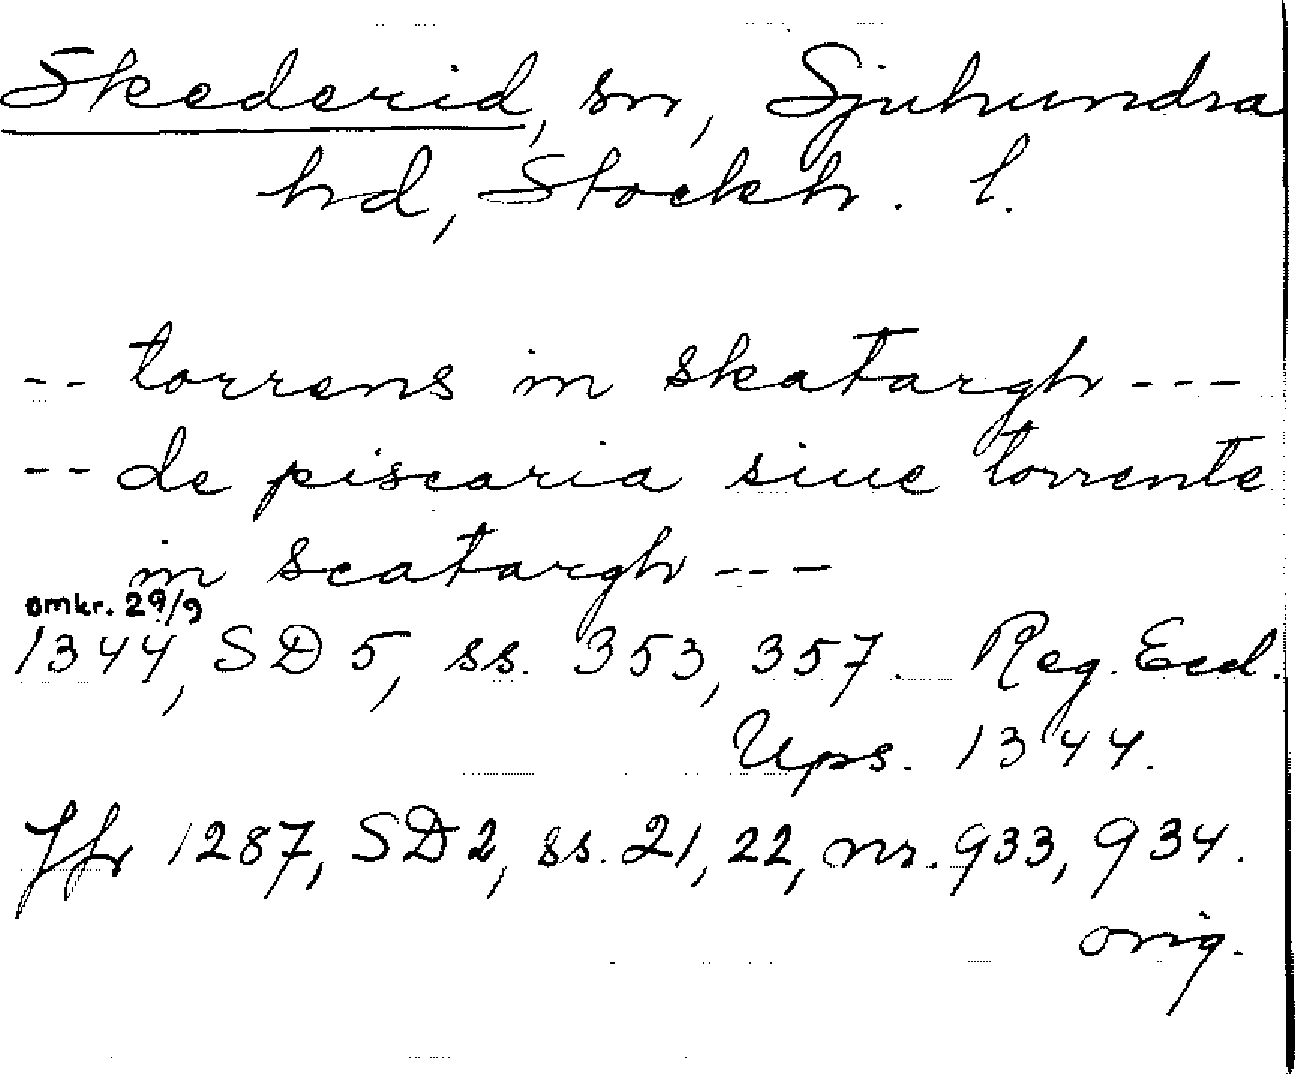 Skederid, sn, Sjuhundra
hd, Stockh. l.
-- torrens in skatargh ---
-- de piscaria siue torrente
in scatargh ---
omkr. 29/9
1344, SD 5, ss. 353, 357. Reg. Eccl.
Ups. 1344.
Jfr 1287, SD 2, ss. 21, 22, nr. 933, 934.
orig.